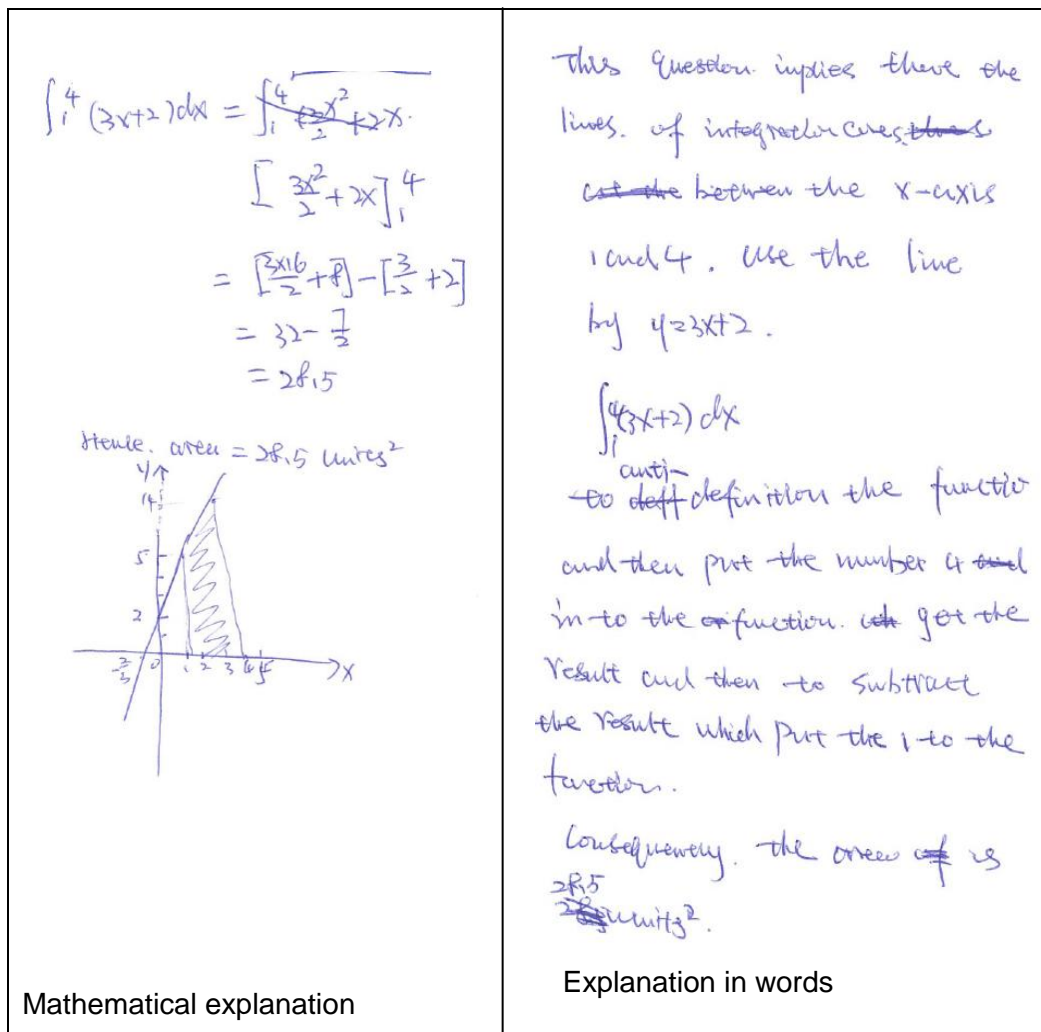 ∫₁⁴ (3x+2)dx = ∫₁⁴ 3x²/2 +2x.
[3x²/2 + 2x]₁⁴
= [3×16/2 + 8] - [3/2 + 2]
= 32 - 7/2
= 28.5
Hence. area = 28.5 units²
y
14
5
2
-2/3 0 1 2 3 4 5 x
Mathematical explanation
This question implies the
lines. of integration
between the x-axis
1 and 4. Use the line
by y=3x+2.
∫₁⁴(3x+2) dx
anti-
to deff definition the functio
and then put the number 4 and
in to the function. get the
result and then to subtract
the result which put the 1 to the
function.
Consequently. the area of is
28.5
units².
Explanation in words